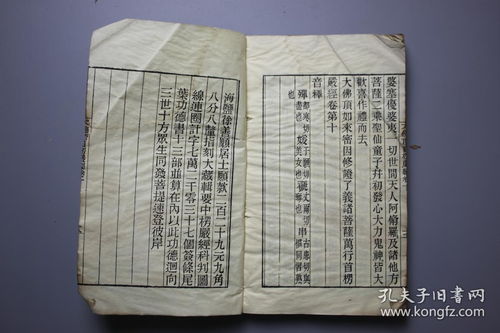 婆塞優婆夷一切世間天人阿脩羅及諸他方
菩薩二乘聖仙童子并初發心大力鬼神皆大
歡喜作禮而去
大佛頂如來密因修證了義諸菩薩萬行首楞
嚴經卷第十
音釋
海鹽徐善願居士願欵三百二十九元九角
八分八釐指刻大藏輯要中楞嚴經科判圖
線連圈計字七萬二千零三十七個簽條尾
葉功德書十三部並算在內以此功德迴向
三世十方眾生同發菩提速登彼岸
孔夫子旧书网
kongfz.com